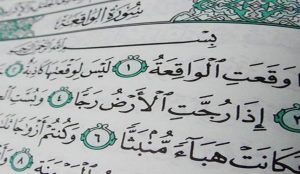 سُورَةُ الوَاقِعَةِ
بِسْمِ
وَقَعَتِ ٱلْوَاقِعَةُ ١ لَيْسَ لِوَقْعَتِهَا كَاذِبَةٌ ٢
٣ إِذَا رُجَّتِ ٱلْأَرْضُ رَجًّا ٤ وَبُسَّتِ
فَكَانَتْ هَبَآءً مُّنۢبَثًّا ٦ وَكُنتُمْ أَزْوَٰجًا
٨